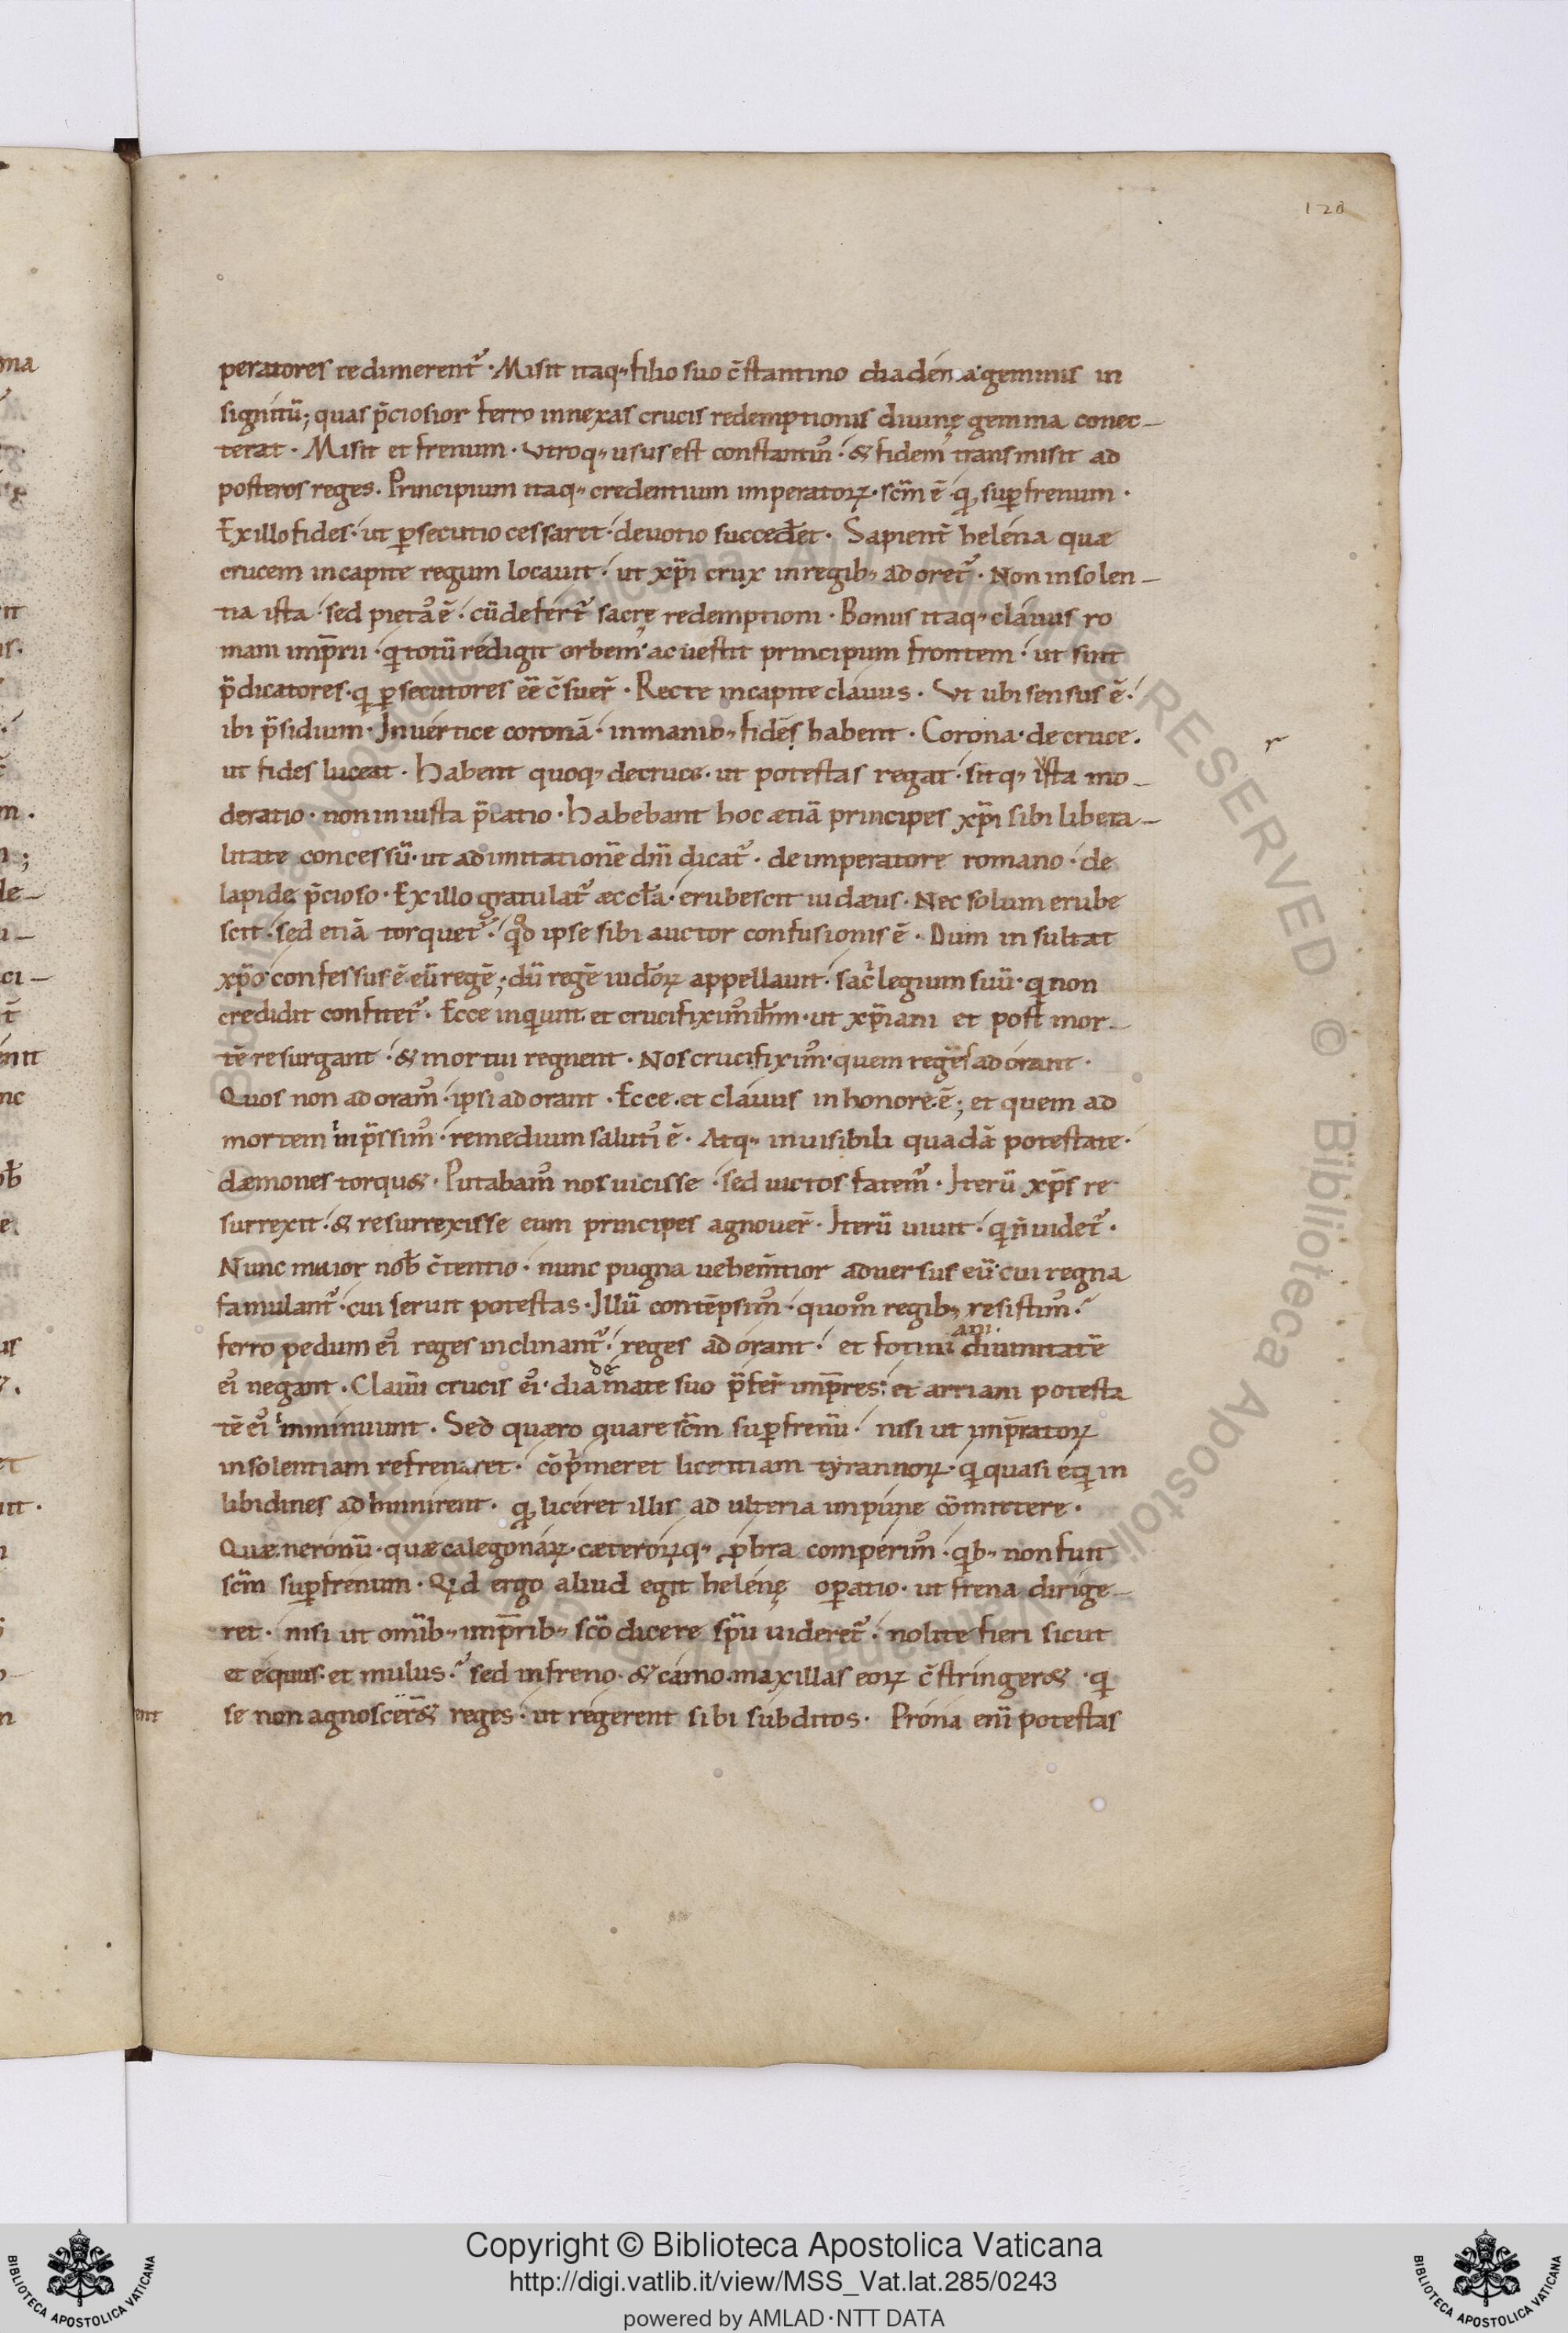 120
peratores redimerent᷒ · Misit itaq;, filio suo c̄stantino diadéma· gemmis in
signitū; quas p̄ciosior ferro innexas crucis redemptionis diuinę gemma conec-
terat · Misit et frenum · Vtroq;, usus est constantin᷒ · & fidem transmisit ad
posteros reges. Principium itaq;, credentium imperatoꝝ · scm̄ ē · qđ sup frenum ·
Ex illo fides · ut ꝑsecutio cessaret · deuotio succeđet · Sapient̄ heléna quæ
crucem in capite regum locauit · ut xp̄i crux in regib;, adoret᷒ · Non insolen-
tia ista · sed pieta᷒ ē · cū defert᷒ sacrę redemptioni · Bonus itaq;, cláuus ro
mani imp̄rii · qi totū rédigit orbem · ac uestit principum frontem · ut sint
p̄dicatores · qi ꝑsecutores eē c̄suer̄ · Recte in capite clauus · Vt ubi sensus ē ·
ibi p̄sidium · In uértice coronā · in manib;, fidēs habent · Corona · de cruce.
r
ut fides luceat · habent quoq;, de cruce · ut potestas regat · sitq;, iusta mo-
deratio · non iniusta p̄latio · habebant hoc ætiā principes xp̄i sibi libera-
litate concessū · ut ad imitationē dn̄i dicat᷒ · de imperatore romano · de
lapide p̄cioso · Ex illo gratulat᷒ æccła · erubescit iudæus · Nec solum erube
scit · sed etiā torquet᷒ · qđ ipse sibi auctor confusionis ē · Dum insultat
xp̄o confessus ē eū regē; dū regē iuđoꝝ appellauit · sac̄legium suū · qi non
credidit confitet᷒ · Ecce inqiunt · et crucifixim᷒ ih̄m · ut xp̄iani et post mor-
tē resurgant · & mortui regnent · Nos crucifixim᷒ · quem regēs adorant ·
Quos non adoram᷒ · ipsi adorant · Ecce · et cláuus in honoré · ē; et quem ad
mortem inp̄ssim᷒ · remedium saluti᷒ ē · Atq;, inuisibili quadā potestate ·
dæmones torqu& · Putabam᷒ nos uicisse · sed uictos fatem᷒ · Iterū xp̄s re
surrexit · & resurrexisse eum principes agnouer̄ · Iterū uiuit · qi n̄ uidet᷒ ·
Nunc maior nob̄ c̄tentio · nunc pugna uehem̄tior aduersus eū cui regna
famulant᷒ · cui seruit potestas · Illū contēpsim᷒ · quom᷒ regib;, resistim᷒ ·
ferro pedum ei᷒ reges inclinant᷒ · reges adorant · et fotini ani diuinitatē
ei᷒ negant · Clauū crucis ei᷒ · dia de mate suo p̄fer̄ imp̄res : et arriani potesta
tē ei᷒ inminuunt · Sed quæro quare scm̄ sup frenū · nisi ut imp̄ratoꝝ
insolentiam refrenaret · cōp̄meret licentiam tyrannoꝝ · qi quasi eqi in
libidines adhinnirent · qđ licéret illis adulteria impúne cōmittere ·
Quæ nerónū · quæ calegonáꝝ · cæteróꝝq;, ꝓbra compérim᷒ · qib;, non fuit
scm̄ sup frenum · Qid ergo aliud egit helénę opatio · ut frena dirige-
ret · nisi ut omīb;, imp̄rib;, scō dicere spū uideret᷒ · nolite fieri sicut
et equus · et mulus · sed in freno · & cámo · maxillas eoꝝ c̄stringer& · qi
se non agnoscer& reges · ut régerent sibi subditos · Próna enī potestas
Copyright © Biblioteca Apostolica Vaticana
http://digi.vatlib.it/view/MSS_Vat.lat.285/0243
powered by AMLAD·NTT DATA